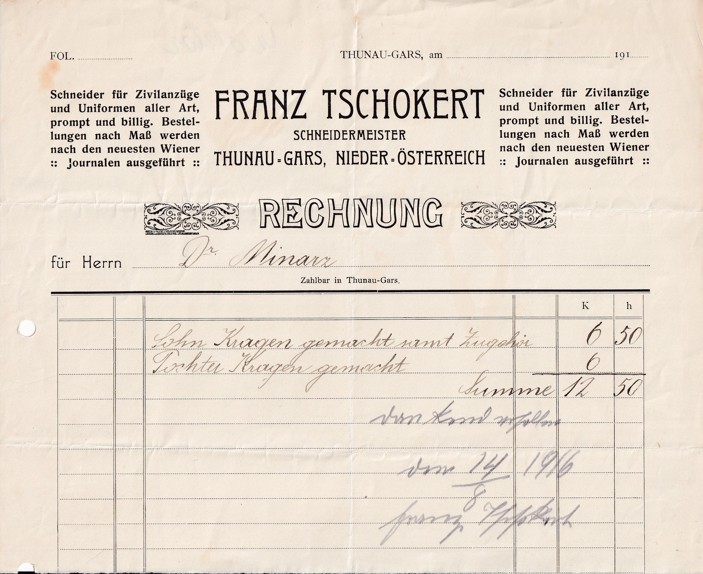 FOL.
THUNAU-GARS, am 191
Schneider für Zivilanzüge
und Uniformen aller Art,
prompt und billig. Bestel-
lungen nach Maß werden
nach den neuesten Wiener
:: Journalen ausgeführt ::
FRANZ TSCHOKERT
SCHNEIDERMEISTER
THUNAU-GARS, NIEDER-ÖSTERREICH
Schneider für Zivilanzüge
und Uniformen aller Art,
prompt und billig. Bestel-
lungen nach Maß werden
nach den neuesten Wiener
:: Journalen ausgeführt ::
RECHNUNG
für Herrn Dr Minarz
Zahlbar in Thunau-Gars.
K h
Sohn Kragen gemacht samt Zugehör 6 50
Tochter Kragen gemacht 6
Summe 12 50
dankend erhalten
den 14/8 1916
Franz Tschokert